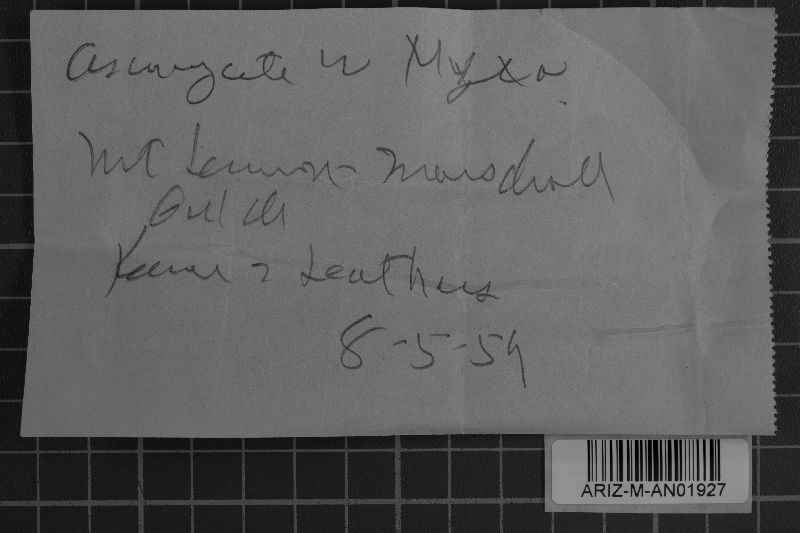 Ascomycete w Myxo.
Mt Lemmon - Marshall
Gulch
Keener & Leathers
8-5-59
ARIZ-M-AN01927